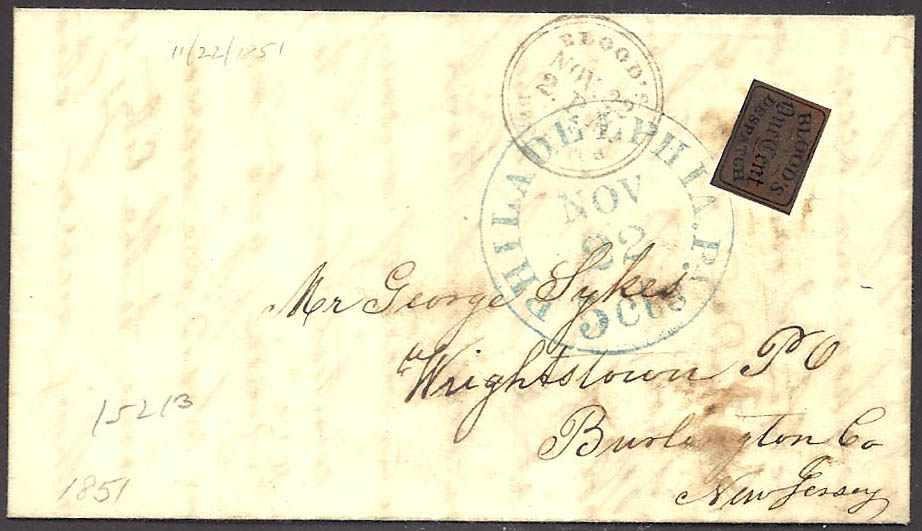 11/22/1851
BLOOD'S
NOV 22
BLOOD'S
One Cent
DESPATCH
PHILADELPHIA.PA.
NOV
22
5 cts
Mr George Sykes
Wrightstown PO
Burlington Co
New Jersey
15213
1851